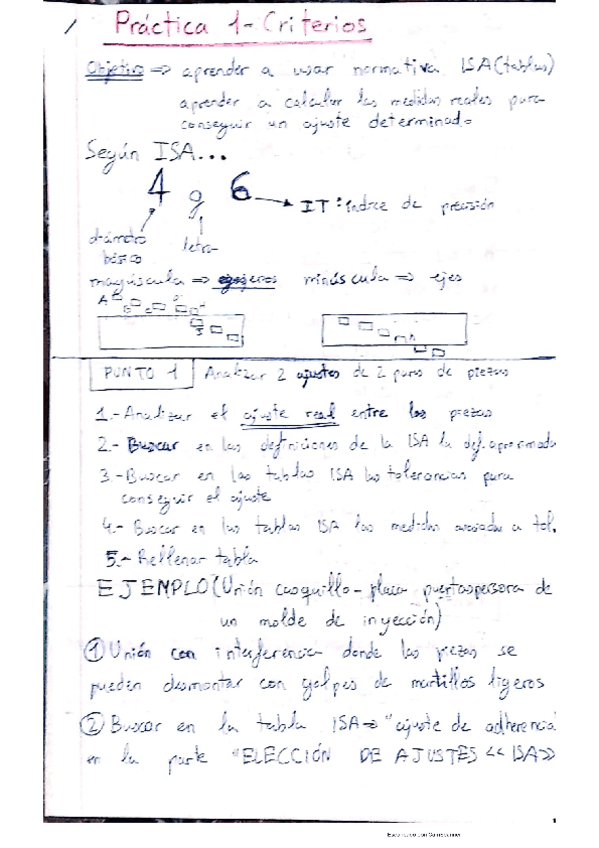 Práctica 1- Criterios
Objetivo => aprender a usar normativa ISA (tablas)
aprender a calcular las medidas reales para
conseguir un ajuste determinado
Según ISA...
4 g 6 → IT: índice de precisión
diámetro básico
letra
mayúscula => agujeros minúscula => ejes
A B C
PUNTO 1 Analizar 2 ajustes de 2 pares de piezas
1.- Analizar el ajuste real entre las piezas
2.- Buscar en las definiciones de la ISA la def. aproximada
3.- Buscar en las tablas ISA las tolerancias para
conseguir el ajuste
4.- Buscar en las tablas ISA las medidas asociadas a tol.
5.- Rellenar tabla
EJEMPLO (Unión casquillo - placa de
un molde de inyección)
① Unión con interferencia donde las piezas se
pueden desmontar con golpes de martillos ligeros
② Buscar en la tabla ISA => "ajuste de adherencia
en la parte "ELECCIÓN DE AJUSTES << ISA>>
1
Escaneado con CamScanner